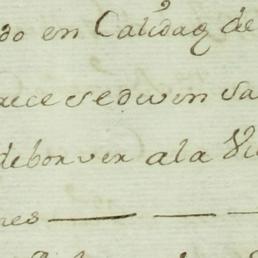 do en Calidaḋ de
rece se diven sa
debonver a la Vi
nes